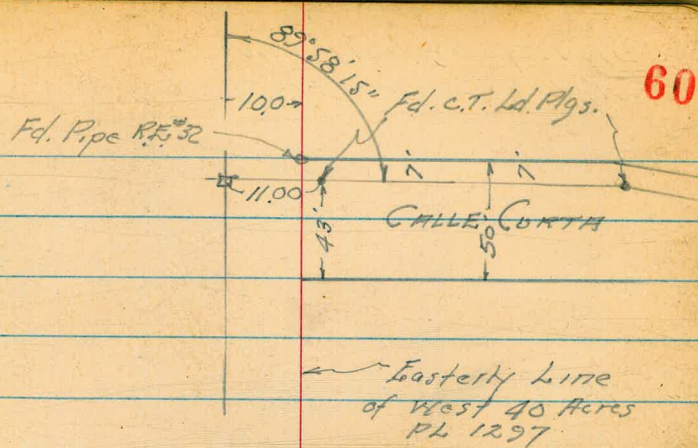 60
89°58'15"
10.0
Fd. C.T. Ld. Plgs.
Fd. Pipe R.E.#32
7' 7'
11.00
CALLE CORTA
43'
50'
Easterly Line
of West 40 Acres
PL 1297